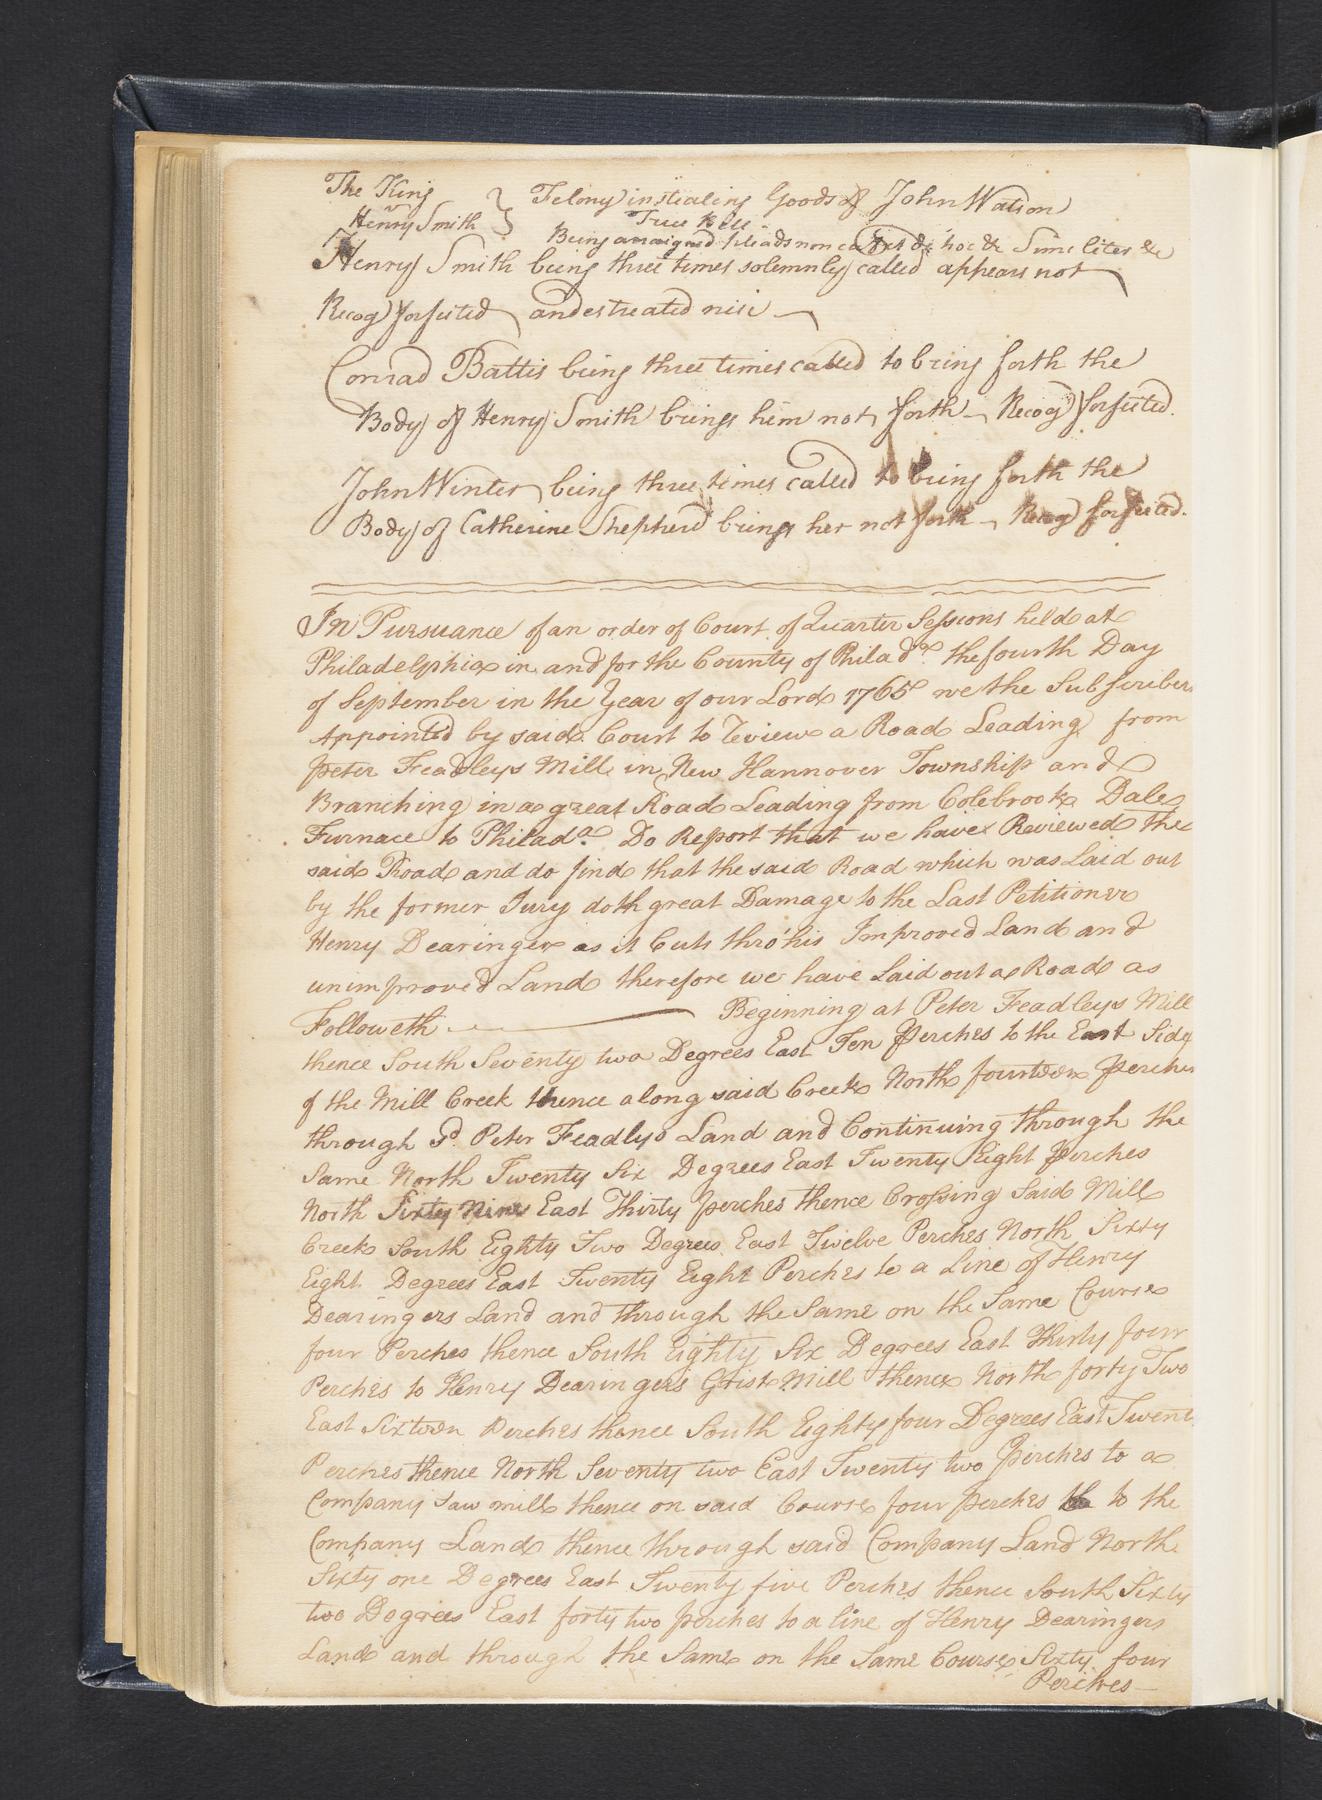 The King
v
Henry Smith } Felony in stealing Goods of John Watson
True Bill.
Being arraigned pleads non cul et de hoc &c Similiter &c
Henry Smith being three times solemnly called appears not
Recog forfeited and estreated nisi
Conrad Battis being three times called to bring forth the
Body of Henry Smith brings him not forth Recog forfeited.
John Winter being three times called to bring forth the
Body of Catherine Shepherd brings her not forth Recog forfeited.
In Pursuance of an order of Court of Quarter Sessions held at
Philadelphia in and for the County of Philada. the fourth Day
of September in the Year of our Lord 1765 we the Subscribers
Appointed by said Court to Review a Road Leading from
Peter Feadleys Mill in New Hannover Township and
Branching in a great Road Leading from Colebrook Dale
Furnace to Philada. Do Report that we have Reviewed the
said Road and do find that the said Road which was Laid out
by the former Jury doth great Damage to the Last Petitioner
Henry Dearinger as it Cuts thro his Improved Land and
unimproved Land therefore we have Laid out a Road as
Followeth Beginning at Peter Feadleys Mill
thence South Seventy two Degrees East Ten Perches to the East Side
of the Mill Creek thence along said Creek North fourteen Perches
through sd. Peter Feadlys Land and Continuing through the
Same North Twenty Six Degrees East Twenty Eight Perches
North Sixty Nine East Thirty perches thence Crossing Said Mill
Creek South Eighty Two Degrees East Twelve Perches North Sixty
Eight Degrees East Twenty Eight Perches to a Line of Henry
Dearingers Land and through the Same on the Same Course
four Perches thence South Eighty Six Degrees East Thirty four
Perches to Henry Dearingers Grist Mill thence North forty Two
East Sixteen Perches thence South Eighty four Degrees East Twent
Perches thence North Seventy two East Twenty two Perches to a
Company Saw mill thence on said Course four perches to the
Company Land thence through said Company Land North
Sixty one Degrees East Twenty five Perches thence South Sixty
two Degrees East forty two perches to a line of Henry Dearingers
Land and through the Same on the Same Course Sixty four
Perches